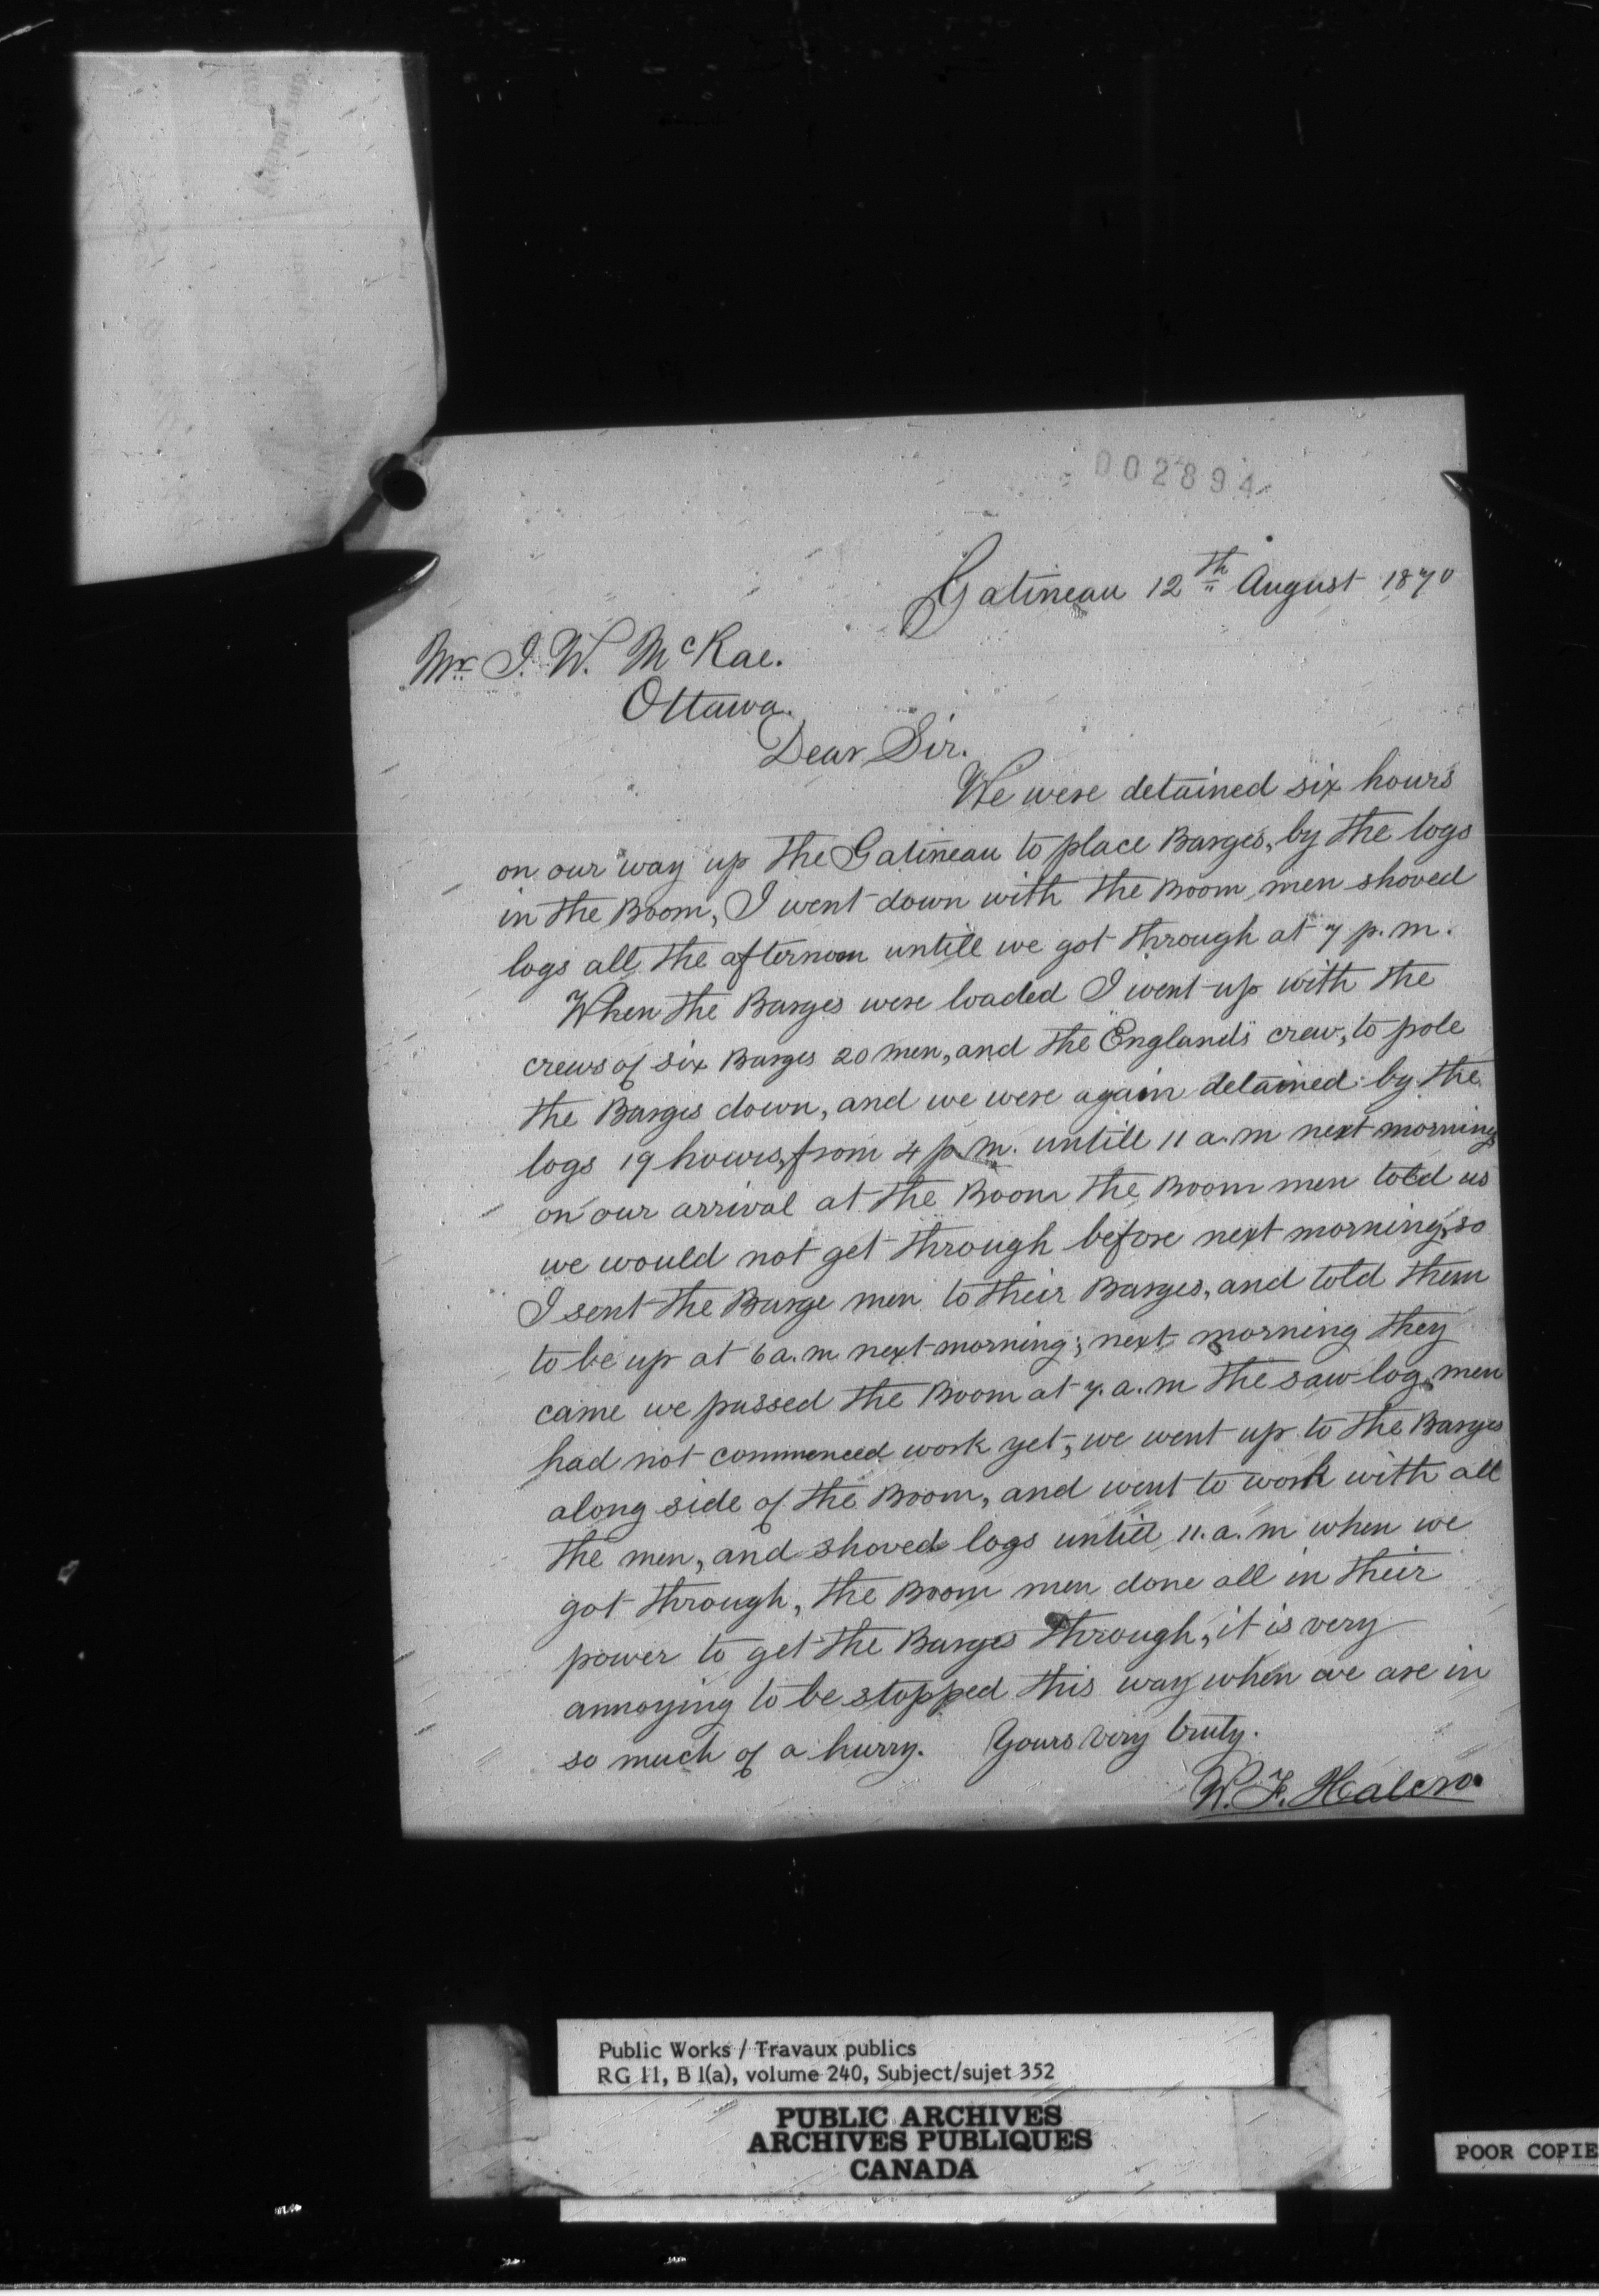 002894
Gatineau 12th August 1870
Mr. J. W. McRae.
Ottawa.
Dear Sir.
We were detained six hours
on our way up the Gatineau to place Barges, by the logs
in the Boom, I went down with the Boom men shoved
logs all the afternoon untill we got through at 7 p.m.
When the Barges were loaded I went up with the
crews of six Barges 20 men, and the "England's" crew, to pole
the Barges down, and we were again detained by the
logs 19 hours, from 4 p.m. untill 11 a.m next morning
on our arrival at the Boom the Boom men told us
we would not get through before next morning, so
I sent the Barge men to their Barges, and told them
to be up at 6 a.m next morning; next morning they
came we passed the Boom at 7. a.m the saw log men
had not commenced work yet, we went up to the Barges
along side of the Boom, and went to work with all
the men, and shoved logs untill 11. a. m when we
got through, the Boom men done all in their
power to get the Barges through, it is very
annoying to be stopped this way when we are in
so much of a hurry. Yours very truly.
W. F. Halcro
Public Works / Travaux publics
RG 11, B 1(a), volume 240, Subject/sujet 352
PUBLIC ARCHIVES
ARCHIVES PUBLIQUES
CANADA
POOR COPIE